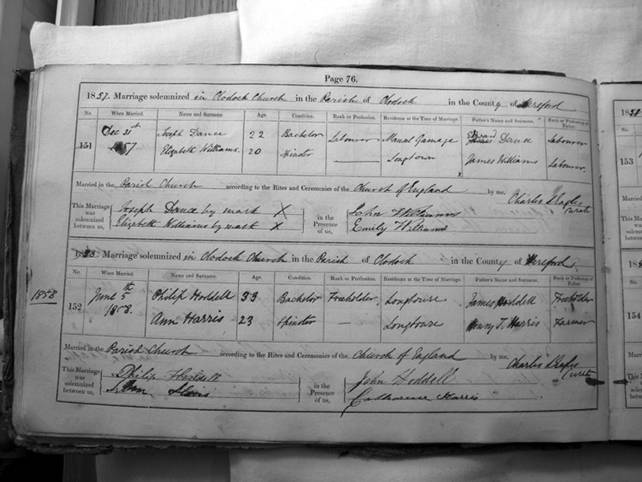 Page 76.
1857. Marriage solemnized in Clodock Church in the Parish of Clodock in the County of Hereford
No. When Married Name and Surname Age. Condition. Rank or Profession. Residence at the Time of Marriage. Father's Name and Surname. Rank or Profession of Father.
151 Dec 31st 1857 Joseph Dance 22 Bachelor Labourer Dance Labourer
Elizabeth Williams 20 Spinster Longtown James Williams Labourer
Married in the Parish Church according to the Rites and Ceremonies of the Church of England by me, Charles
This Marriage was solemnized between us, Joseph Dance by mark X in the Presence of us, John Williams
Elizabeth Williams by mark X Emily Williams
Marriage solemnized in Clodock Church in the Parish of Clodock in the County of Hereford
No. When Married Name and Surname Age. Condition. Rank or Profession. Residence at the Time of Marriage. Father's Name and Surname. Rank or Profession of Father.
1858 152 June 5th 1858. Philip Hoddell 33 Bachelor Freeholder James Hoddell Freeholder
Ann Harris 23 Spinster Harris Farmer
Married in the Parish Church according to the Rites and Ceremonies of the Church of England by me, Charles
This Marriage was solemnized between us, Philip Hoddell in the Presence of us, John Hoddell
Ann Catherine Harris
153
154